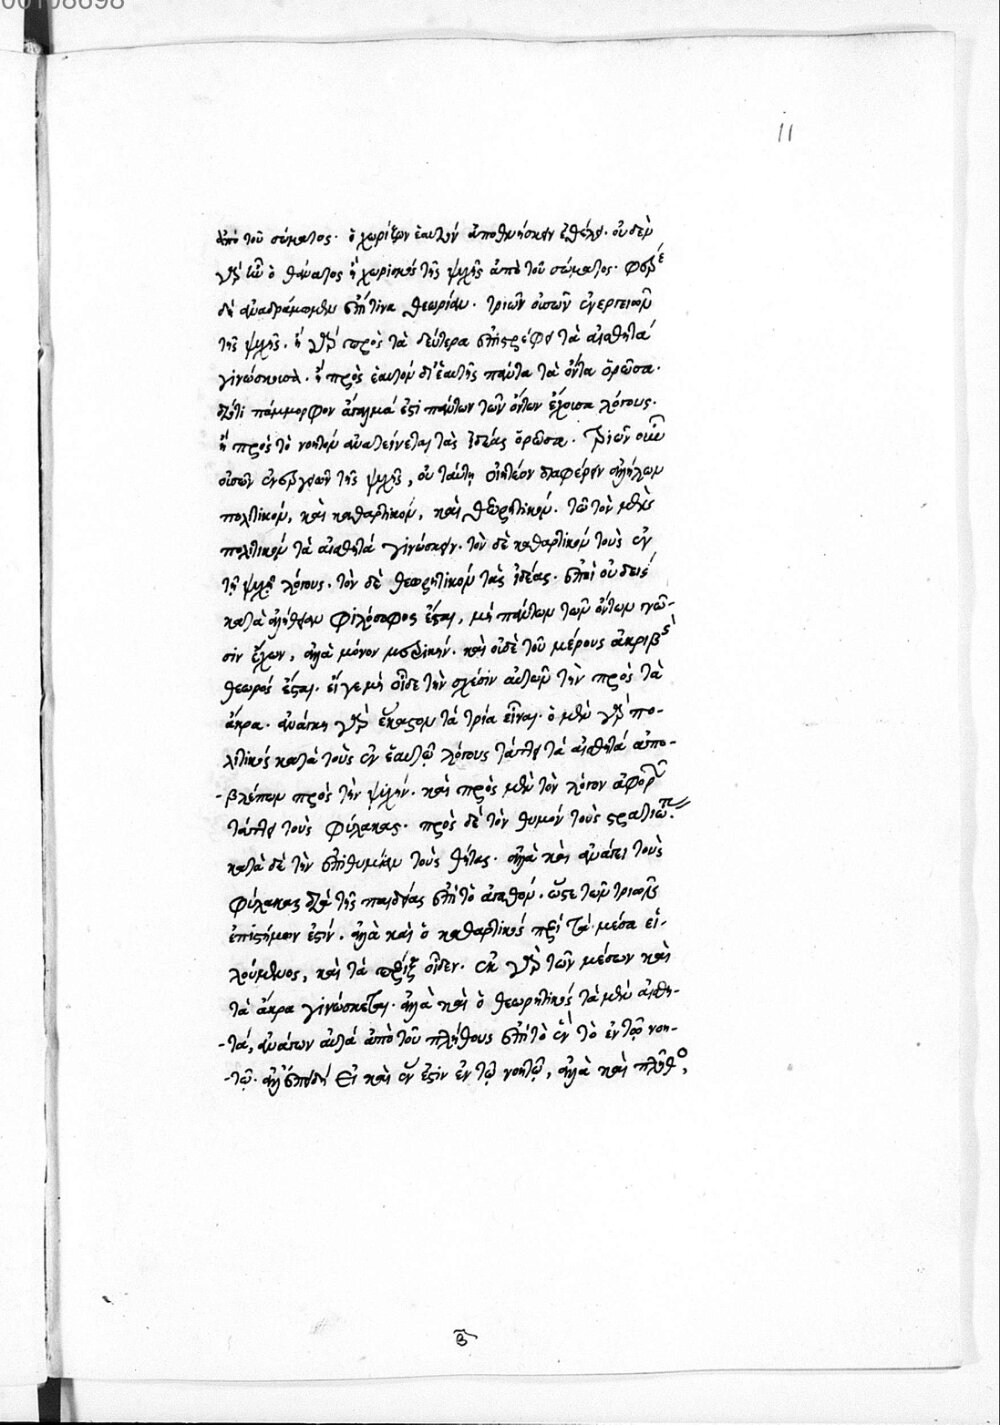 00108698
11
ἀπὸ τοῦ σώματος. ὁ χωρίζων ἑαυτὸν ἀποθνήσκειν ἐθέλει. οὐδὲν
γὰρ ἦν ὁ θάνατος ἢ χωρισμός τῆς ψυχῆς ἀπὸ τοῦ σώματος. φέρε
δὴ ἀναδράμωμεν ἐπί τινα θεωρίαν. τριῶν οὐσῶν ἐνεργειῶν
τῆς ψυχῆς. ἢ γὰρ πρὸς τὰ δεύτερα ἐπιστρέφει τὰ αἰσθητά
γινώσκουσα. ἢ πρὸς ἑαυτὴν δι' ἑαυτῆς πάντα τὰ ὄντα ὁρῶσα.
διότι πάμμορφον ἄγαλμά ἐστι πάντων τῶν ὄντων ἔχουσα λόγους.
ἢ πρὸς τὸ νοητὸν ἀνατείνεται τὰς ἰδέας ὁρῶσα. τριῶν οὖν
οὐσῶν ἐνεργειῶν τῆς ψυχῆς, οὐ ταύτῃ οἰητέον διαφέρειν ἀλλήλων
πολιτικόν, καὶ καθαρτικόν, καὶ θεωρητικόν. τῶ τὸν μὲν
πολιτικὸν τὰ αἰσθητά γινώσκειν. τὸν δὲ καθαρτικὸν τοὺς ἐν
τῆ ψυχῆ λόγους. τὸν δὲ θεωρητικὸν τὰς ἰδέας. ἐπεὶ οὐδείς
κατὰ ἀλήθειαν φιλόσοφος ἔσται, μὴ πάντων τῶν ὄντων γνῶ-
σιν ἔχων, ἀλλὰ μόνον μερικήν. καὶ οὐδὲ τοῦ μέρους ἀκριβὴς
θεωρός ἔσται. εἴγε μὴ οἶδε τὴν σχέσιν αὐτῶν τὴν πρὸς τὰ
ἄκρα. ἀνάγκη γὰρ ἕκαστον τὰ τρία εἶναι. ὁ μὲν γὰρ πο-
λιτικός κατὰ τοὺς ἐν ἑαυτῷ λόγους τάττει τὰ αἰσθητά ἀπο-
βλέπων πρὸς τὴν ψυχήν. καὶ πρὸς μὲν τὸν λόγον ἀφορῶν
τάττει τοὺς φύλακας. πρὸς δὲ τὸν θυμόν τοὺς στρατιώτας.
κατὰ δὲ τὴν ἐπιθυμίαν τοὺς θῆτας. ἀλλὰ καὶ ἀνάγει τοὺς
φύλακας διὰ τῆς παιδείας ἐπὶ τὸ ἀγαθόν. ὥστε τῶν τριῶν
ἐπιστήμων ἐστίν. ἀλλὰ καὶ ὁ καθαρτικός περὶ τὰ μέσα εἰ-
λούμενος, καὶ τὰ πέριξ οἶδεν. ἐκ γὰρ τῶν μέσων καὶ
τὰ ἄκρα γινώσκεται. ἀλλὰ καὶ ὁ θεωρητικός τὰ μὲν αἰσθη-
τά, ἀνάγων αὐτά ἀπὸ τοῦ πλήθους ἐπὶ τὸ ἓν τὸ ἐν τῷ νοη-
τῷ. ἀλλ' ἐπειδή εἰ καὶ ἕν ἐστιν ἐν τῷ νοητῷ, ἀλλὰ καὶ πλῆθος,